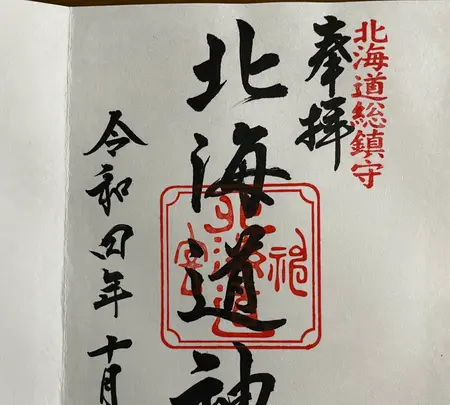 北海道総鎮守
奉拝
北海道神
令和四年十月